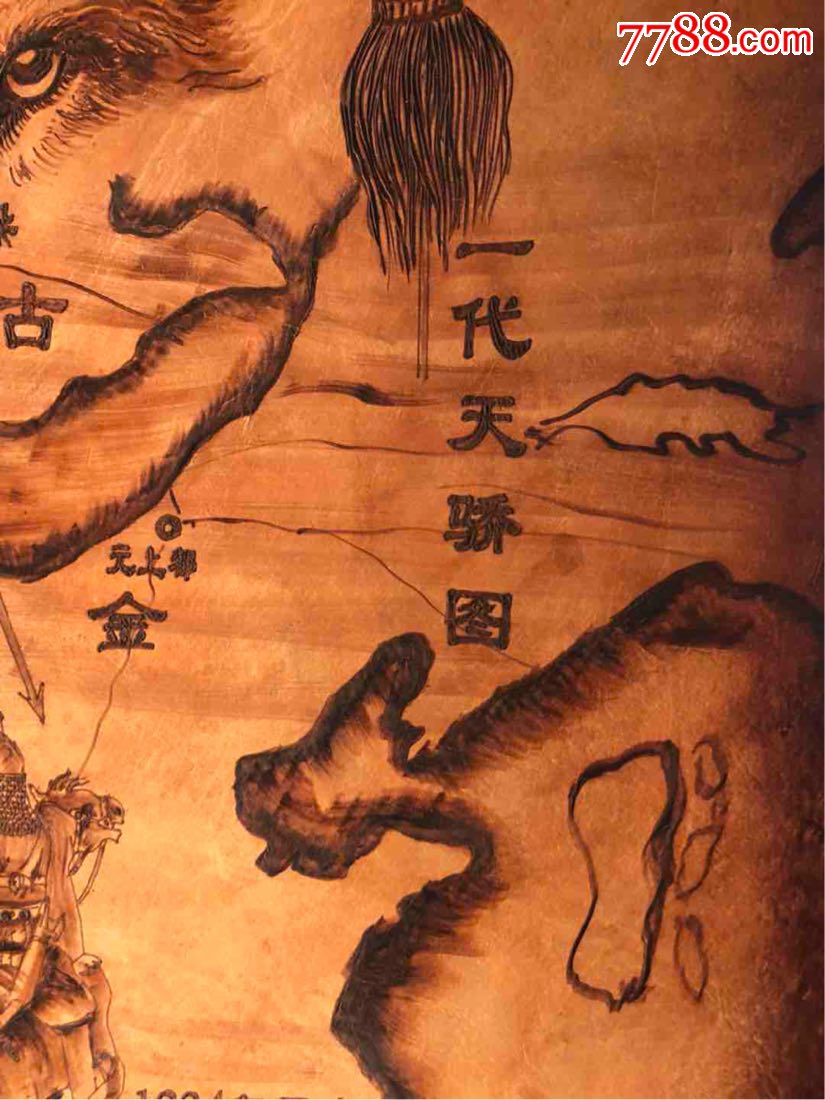 7788.com
一代天骄图
古
元上都
金